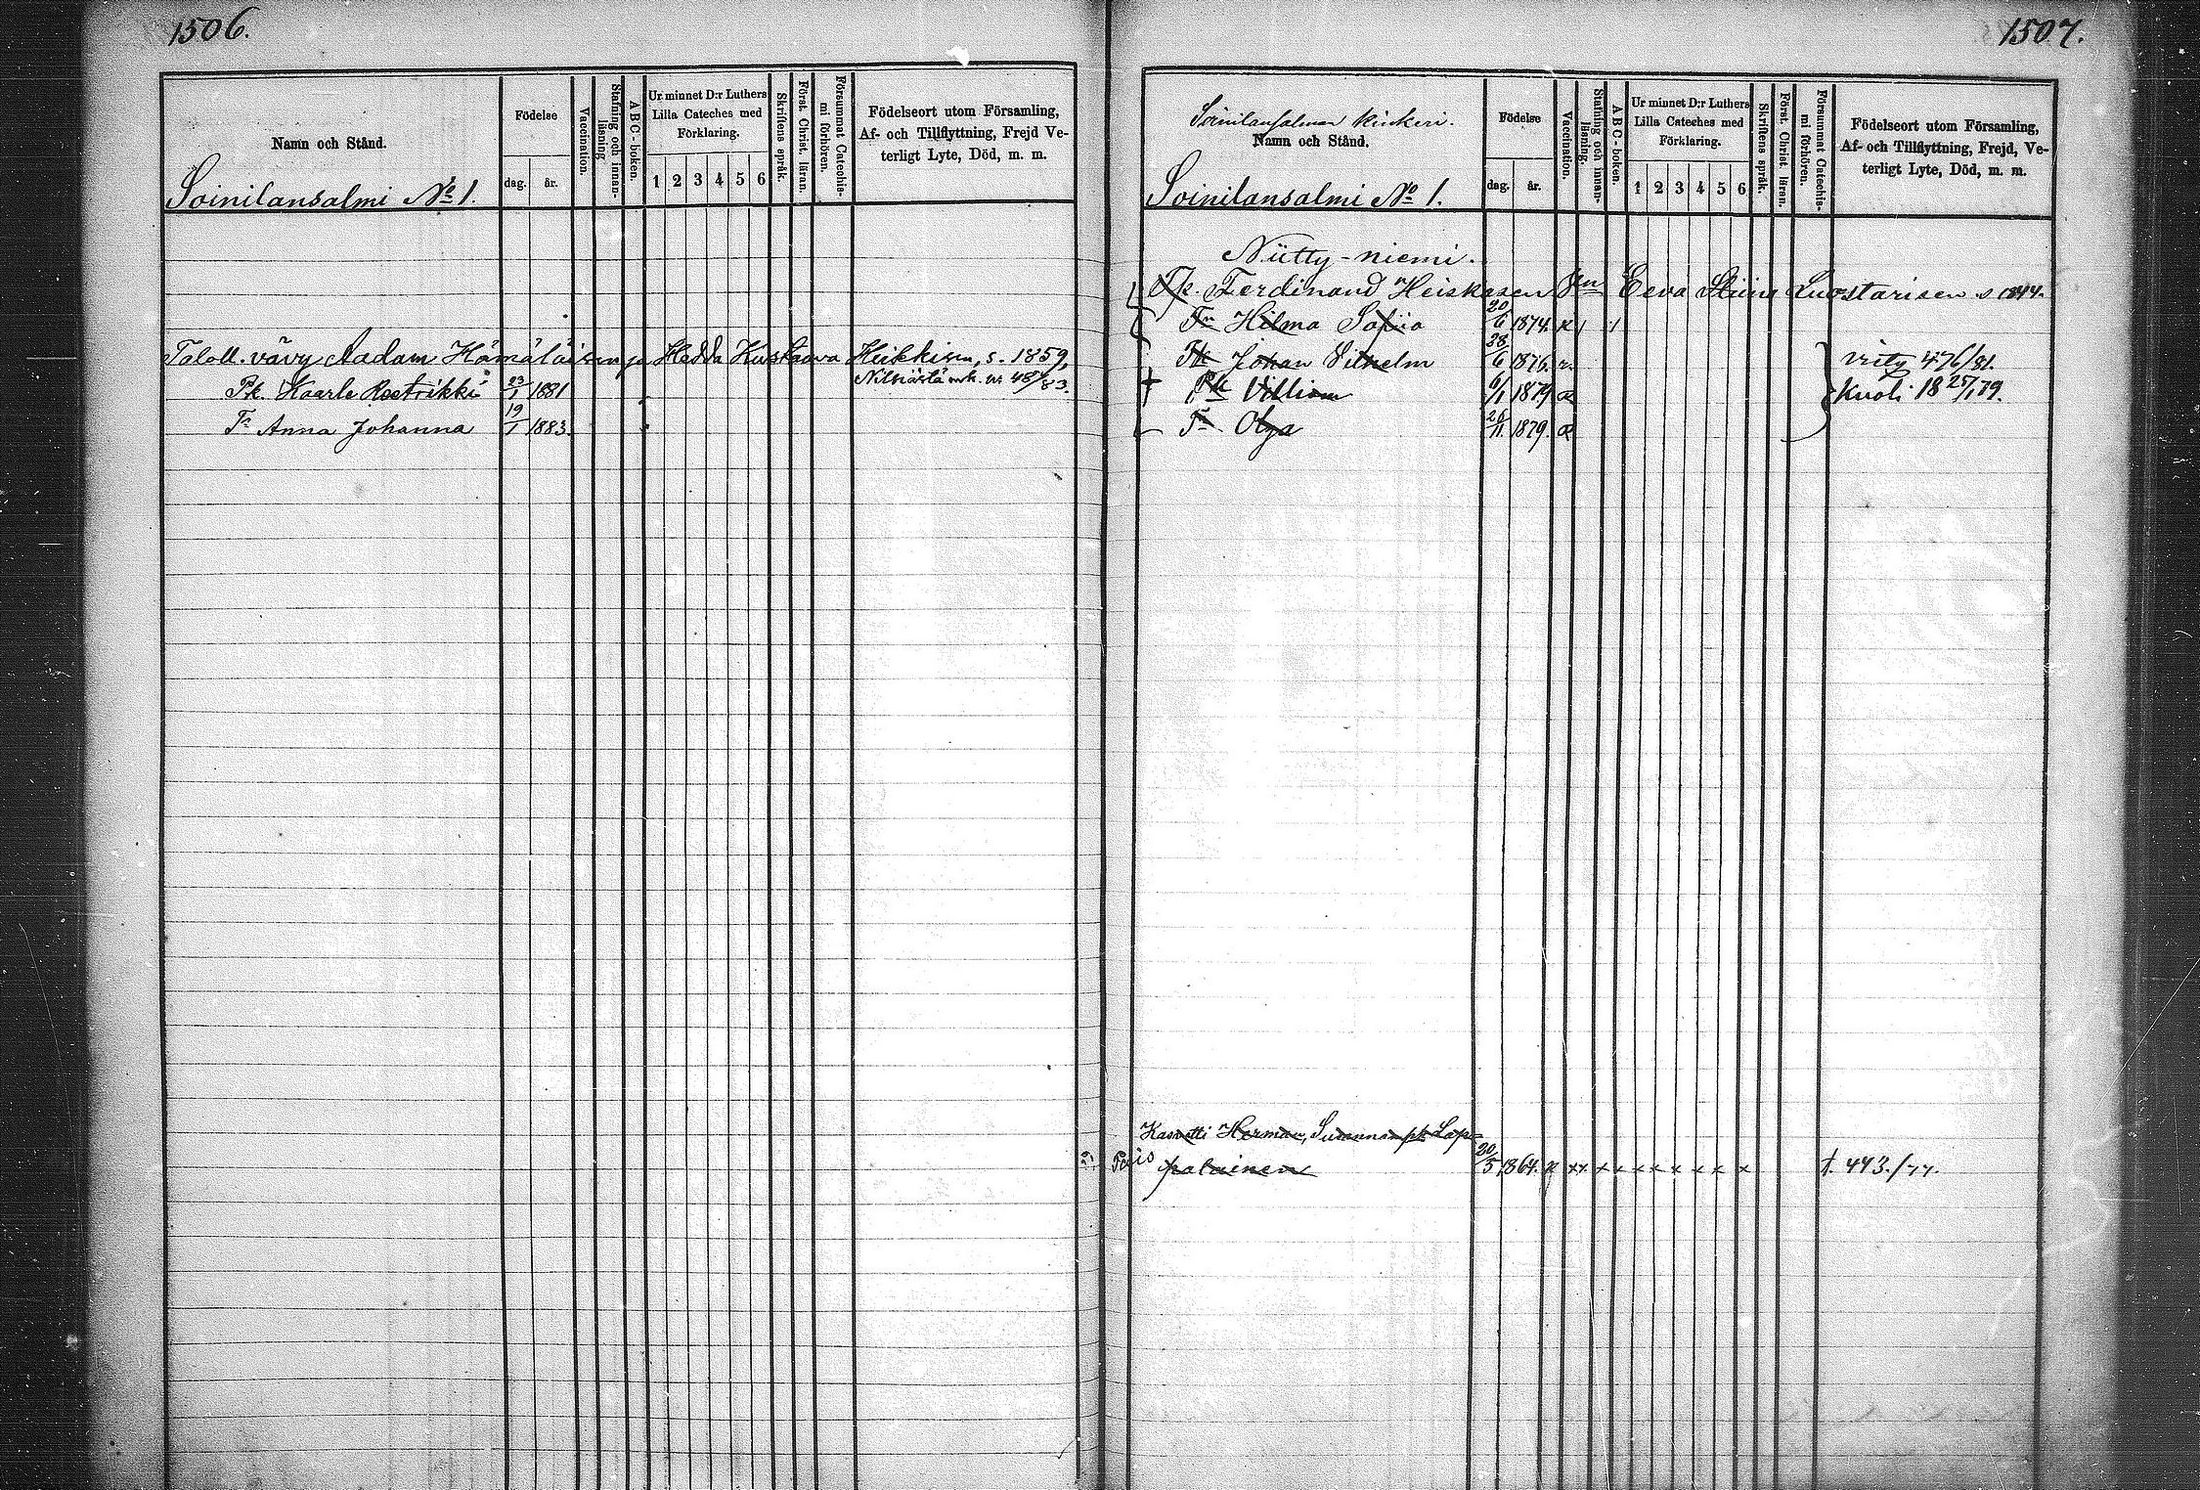 1506.
Namn och Stånd.
Födelse
dag.
år.
Vaccination.
Stafning och innan-
läsning
ABC-boken.
Ur minnet D:r Luthers
Lilla Cateches med
Förklaring.
1 2 3 4 5 6
Skriftens språk.
Först. Christ. läran.
Försummat Catechis-
mi förhören.
Födelseort utom Församling,
Af- och Tillflyttning, Frejd Ve-
terligt Lyte, Död, m. m.
Soinilansalmi No 1.
Taloll. vävy Aadam Hämäläisen ja Hedda Kustaava Heikkisen, s. 1859,
Pk. Kaarle Rostrikki 23/1 1881 Nilsiästä mk. nr 48/83.
Tr Anna Johanna 19/1 1883.
1507.
Soinilansalmen kinkeri.
Namn och Stånd.
Födelse
dag.
år.
Vaccination.
Stafning och innan-
läsning.
ABC-boken.
Ur minnet D:r Luthers
Lilla Cateches med
Förklaring.
1 2 3 4 5 6
Skriftens språk.
Först. Christ. läran.
Försummat Catechis-
mi förhören.
Födelseort utom Församling,
Af- och Tillflyttning, Frejd, Ve-
terligt Lyte, Död, m. m.
Soinilansalmi No 1.
Nütty-niemi.
Ferdinand Heiskasen Eeva Stiina Luostarisen s 1844.
Tr Hilma Sofiia 20/6 1874.
Pk Johan Vilhelm 28/6 1876. r. 476/81.
† Pk Villiam 6/1 1879 R Kuoli 18 25/1 79.
Tr Olga 26/11 1879. R
Kasvatti Herman, Susanna pk Lap=
palainen 20/5 1864. x xx x x x x x x x †. 443./77.